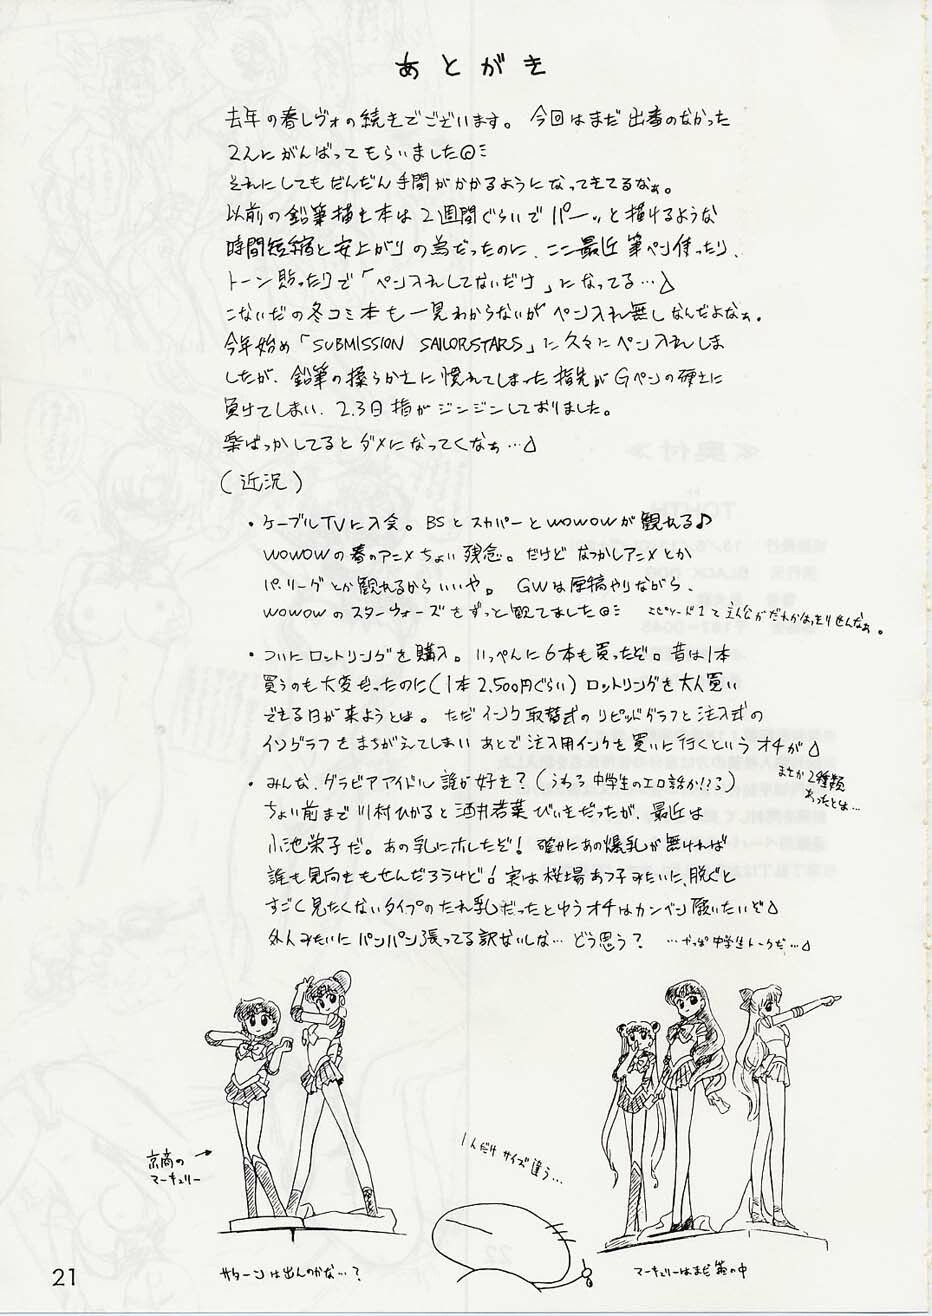 あとがき
去年の春レヴォの続きでございます。今回はまだ出番のなかった
2人にがんばってもらいました◎ミ
それにしてもだんだん手間がかかるようになってきてるなぁ。
以前の鉛筆描き本は2週間ぐらいでパーッと描けるような
時間短縮と安上がりの為だったのに、ここ最近筆ペン使ったり、
トーン貼ったりで「ペン入れしてないだけ」になってる…△
こないだの冬コミ本も一見わからないがペン入れ無しなんだよなぁ。
今年始め「SUBMISSION SAILORSTARS」に久々にペン入れしま
したが、鉛筆の柔らかさに慣れてしまった指先がGペンの硬さに
負けてしまい、2.3日指がジンジンしておりました。
楽ばっかしてるとダメになってくなぁ…△
(近況)
・ケーブルTVに入会。BSとスカパーとWOWOWが観れる♪
WOWOWの春のアニメちょい残念。だけどなつかしアニメとか
パ・リーグとか観れるからいいや。GWは原稿やりながら、
WOWOWのスターウォーズをずっと観てました◎ミ エピソード1って主人公がだれかはっきりせんなぁ。
・ついにロットリングを購入。いっぺんに6本も買ったぞ。昔は1本
買うのも大変だったのに(1本2,500円ぐらい)ロットリングを大人買い
できる日が来ようとは。ただインク取替式のラピッドグラフと注入式の
イソグラフをまちがえてしまいあとで注入用インクを買いに行くというオチが△
まさか2種類
あったとは…
・みんな、グラビアアイドル誰が好き?(うわっ中学生のエロ話か!?)
ちょい前まで川村ひかると酒井若菜びいきだったが、最近は
小池栄子だ。あの乳にホレたぞ!確かにあの爆乳が無ければ
誰も見向きもせんだろうけど!実は桜場あつ子みたいに、脱ぐと
すごく見たくないタイプのたれ乳だったとゆうオチはカンベン願いたいぞ△
外人みたいにパンパン張ってる訳ないしな…どう思う? …やっぱ中学生トークだ…△
京商の
マーキュリー
1人だけサイズ違う…
サターンは出んのかな…?
マーキュリーはまだ箱の中
21